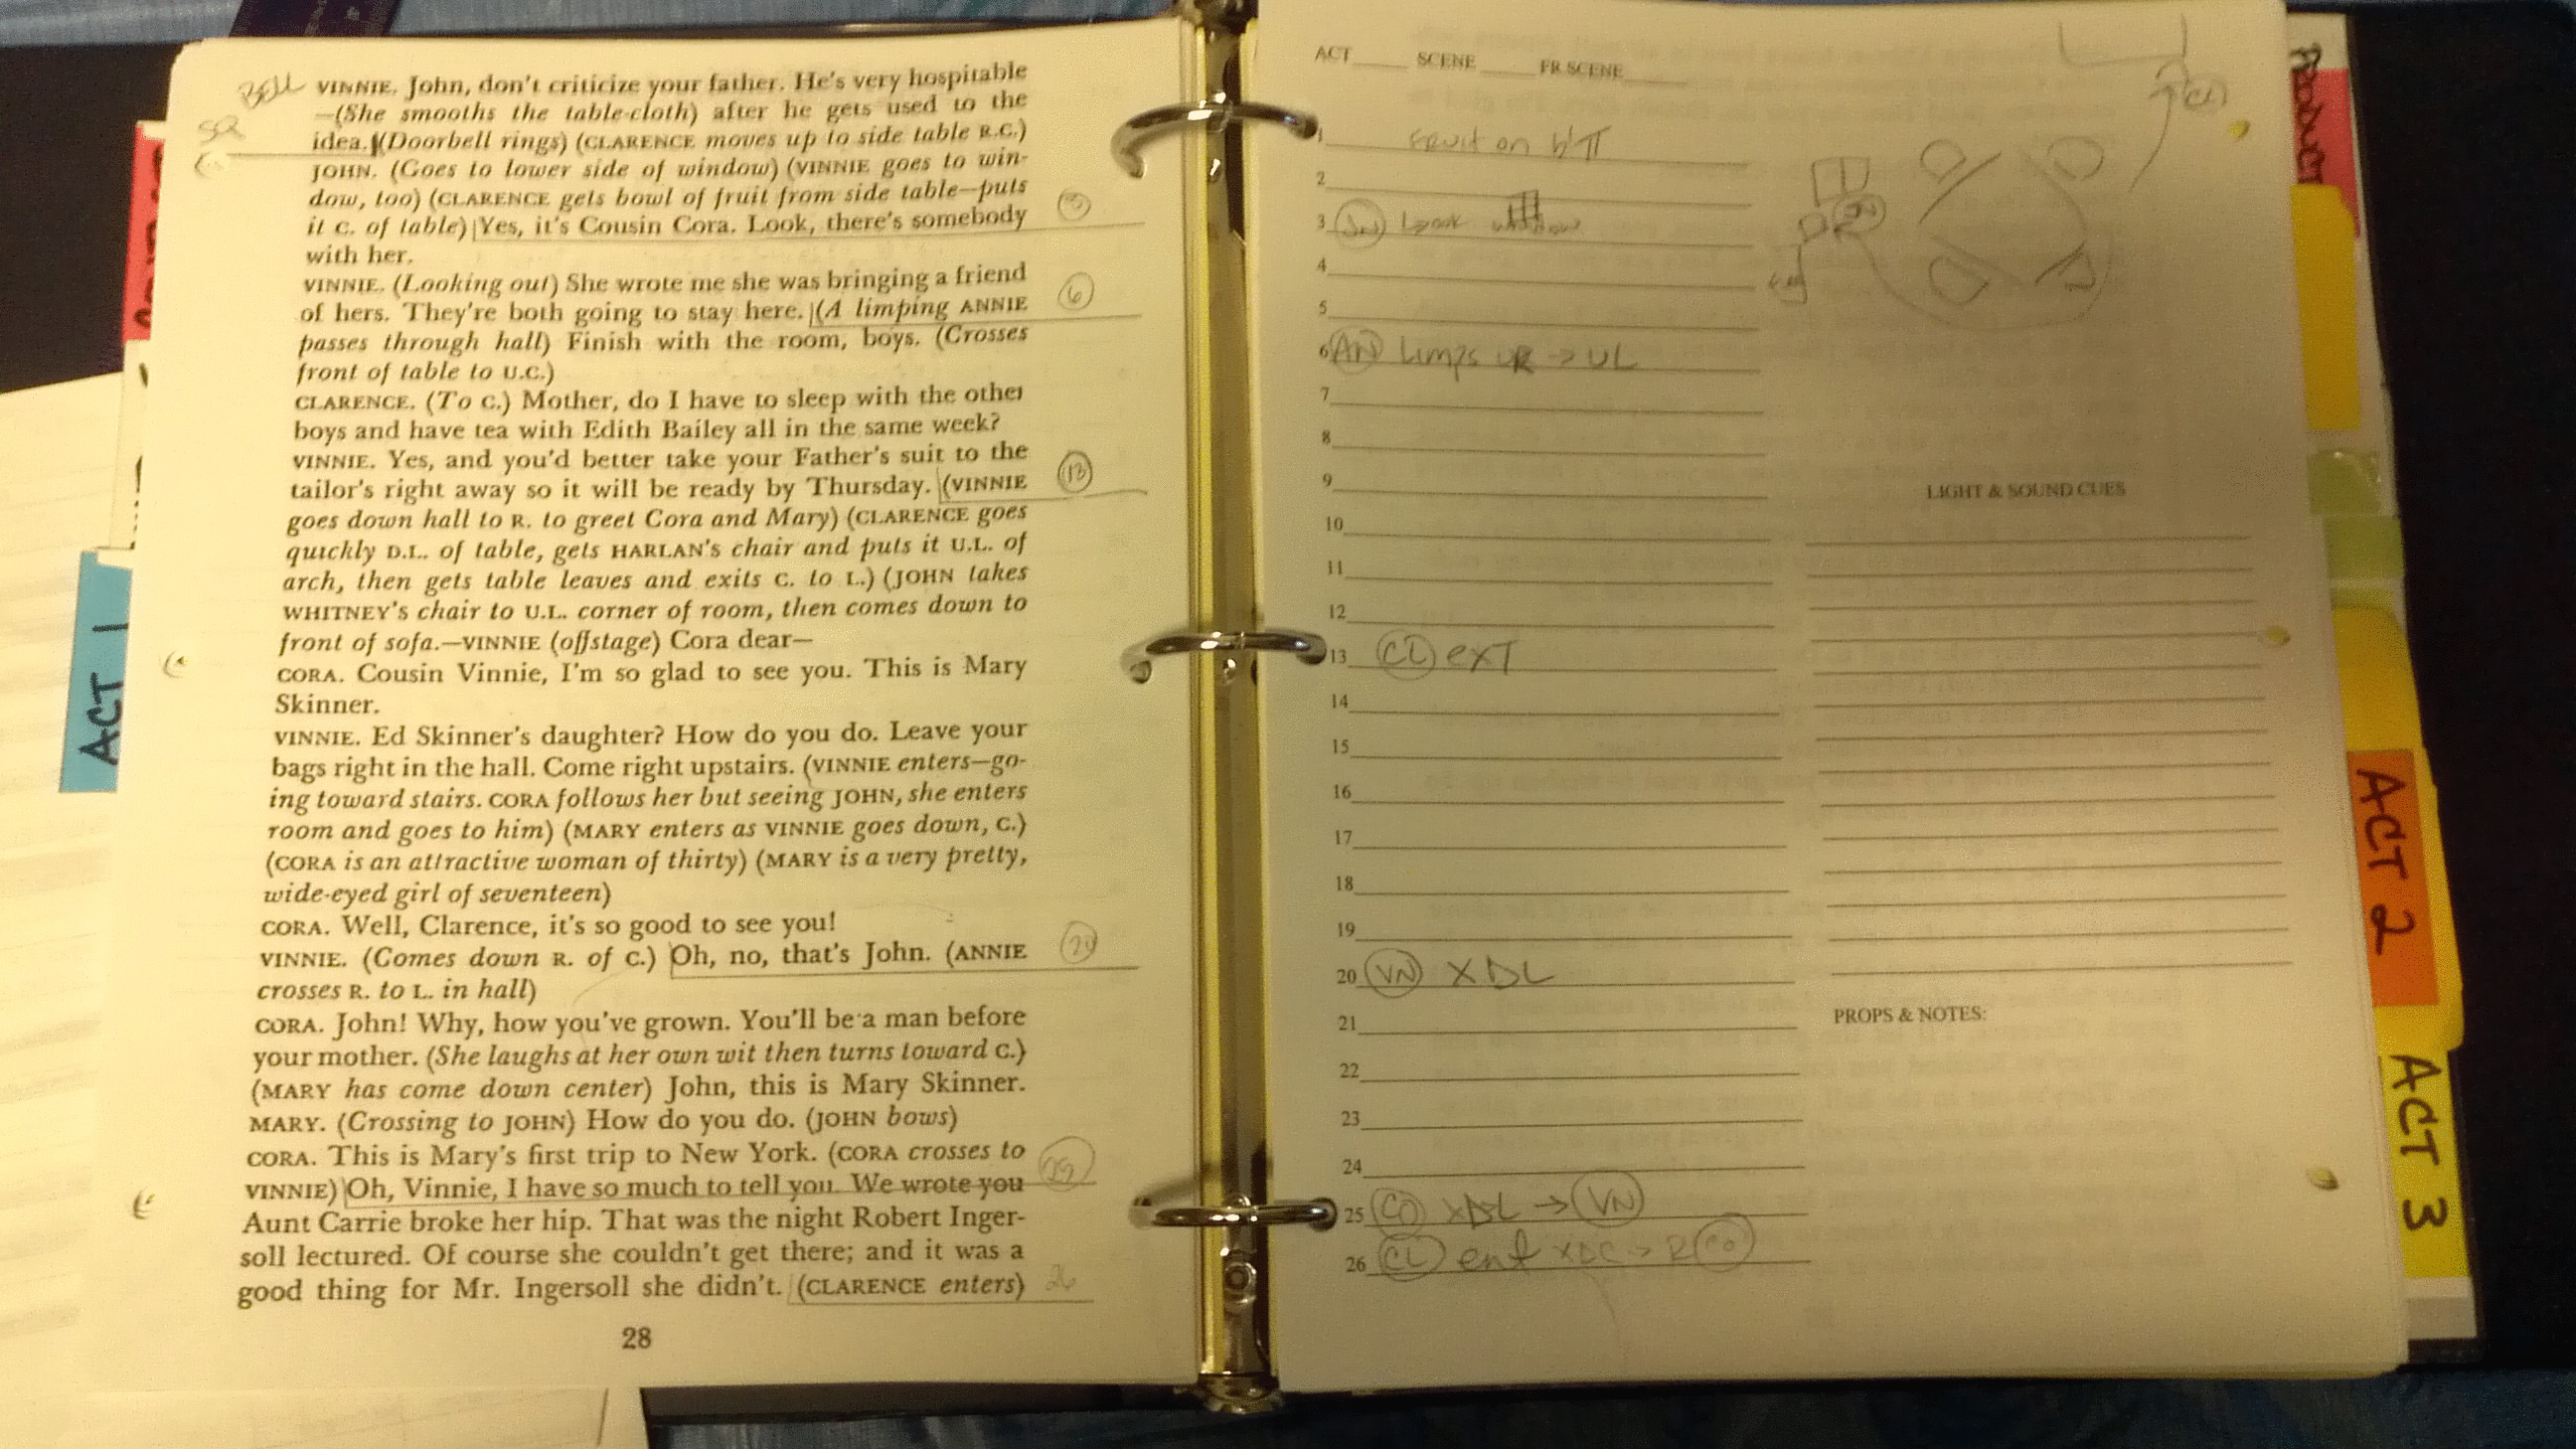 BELL
SQ
VINNIE. John, don't criticize your father. He's very hospitable
—(She smooths the table-cloth) after he gets used to the
idea. (Doorbell rings) (CLARENCE moves up to side table R.C.)
JOHN. (Goes to lower side of window) (VINNIE goes to win-
dow, too) (CLARENCE gets bowl of fruit from side table—puts
it C. of table) Yes, it's Cousin Cora. Look, there's somebody
with her.
3
VINNIE. (Looking out) She wrote me she was bringing a friend
of hers. They're both going to stay here. (A limping ANNIE
6
passes through hall) Finish with the room, boys. (Crosses
front of table to U.C.)
CLARENCE. (To C.) Mother, do I have to sleep with the other
boys and have tea with Edith Bailey all in the same week?
VINNIE. Yes, and you'd better take your Father's suit to the
tailor's right away so it will be ready by Thursday. (VINNIE
13
goes down hall to R. to greet Cora and Mary) (CLARENCE goes
quickly D.L. of table, gets HARLAN'S chair and puts it U.L. of
arch, then gets table leaves and exits C. to L.) (JOHN takes
WHITNEY'S chair to U.L. corner of room, then comes down to
front of sofa.—VINNIE (offstage) Cora dear—
CORA. Cousin Vinnie, I'm so glad to see you. This is Mary
Skinner.
VINNIE. Ed Skinner's daughter? How do you do. Leave your
bags right in the hall. Come right upstairs. (VINNIE enters—go-
ing toward stairs. CORA follows her but seeing JOHN, she enters
room and goes to him) (MARY enters as VINNIE goes down, C.)
(CORA is an attractive woman of thirty) (MARY is a very pretty,
wide-eyed girl of seventeen)
CORA. Well, Clarence, it's so good to see you!
VINNIE. (Comes down R. of C.) Oh, no, that's John. (ANNIE
20
crosses R. to L. in hall)
CORA. John! Why, how you've grown. You'll be a man before
your mother. (She laughs at her own wit then turns toward C.)
(MARY has come down center) John, this is Mary Skinner.
MARY. (Crossing to JOHN) How do you do. (JOHN bows)
CORA. This is Mary's first trip to New York. (CORA crosses to
VINNIE) Oh, Vinnie, I have so much to tell you. We wrote you
25
Aunt Carrie broke her hip. That was the night Robert Inger-
soll lectured. Of course she couldn't get there; and it was a
good thing for Mr. Ingersoll she didn't. (CLARENCE enters)
26
28
ACT 1
ACT SCENE FR SCENE
1 Fruit on
2
3 JN Look window
4
5
6 AN Limps UR → UL
7
8
9
10
11
12
13 CL ext
14
15
16
17
18
19
20 VN XDL
21
22
23
24
25 CO XDL → VN
26 CL ent XDC → R CO
CL
JN
LIGHT & SOUND CUES
PROPS & NOTES:
ACT 2
ACT 3